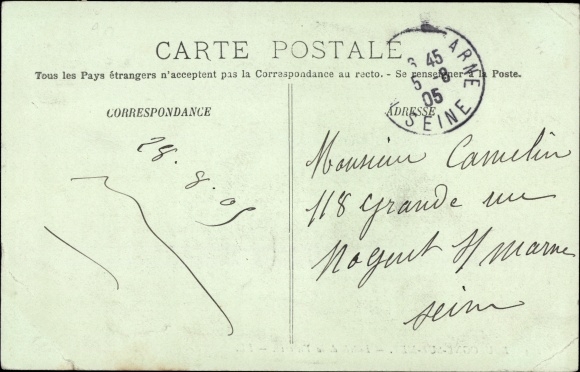 CARTE POSTALE
Tous les Pays étrangers n'acceptent pas la Correspondance au recto. - Se renseigner à la Poste.
CORRESPONDANCE
ADRESSE
ARNE
45
5-8
05
SEINE
28.8.05
Monsieur Camelin
118 Grande rue
Nogent s/ marne
seine